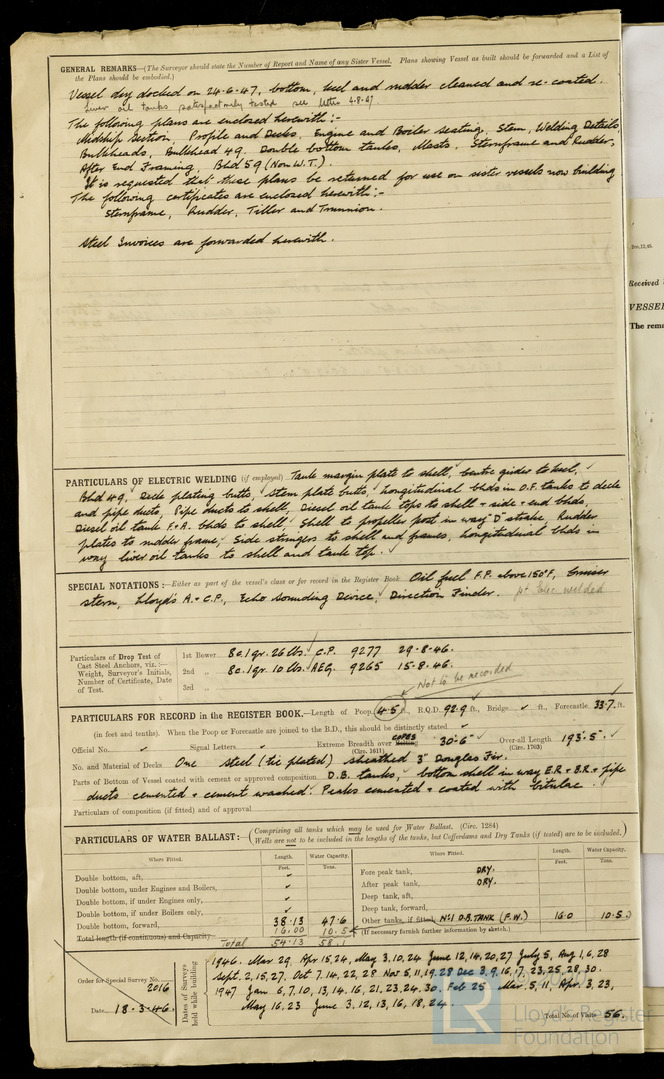 GENERAL REMARKS—(The Surveyor should state the Number of Report and Name of any Sister Vessel. Plans showing Vessel as built should be forwarded and a List of
the Plans should be embodied.)
Vessel dry docked on 24-6-47, bottom, keel and rudder cleaned and re-coated.
Liver oil tanks satisfactorily tested see letter 4.8.47.
The following plans are enclosed herewith:-
Midship Section, Profile and Decks, Engine and Boiler Seating, Stem, Welding Details,
Bulkheads, Bulkhead 49, Double bottom tanks, Masts, Sternframe and Rudder,
After End Framing, Bhd 59 (Non W.T.).
It is requested that these plans be returned for use on sister vessels now building
The following certificates are enclosed herewith:-
Sternframe, Rudder, Tiller and Trunnion.
Steel Invoices are forwarded herewith.
PARTICULARS OF ELECTRIC WELDING (if employed) Tank margin plate to shell, Centre girder to keel,
Bhd 49, Deck plating butts, Stem plate butts, Longitudinal bhds in O.F. tanks to deck
and pipe ducts, Pipe ducts to shell, Diesel oil tank tops to shell + side + end bhds,
Diesel oil tank F.+A. bhds to shell, Shell to propeller post in way "D" strake, Rudder
plates to rudder frame, Side stringers to shell and frames, Longitudinal bhds in
way liver oil tanks to shell and tank top.
SPECIAL NOTATIONS:—Either as part of the vessel's class or for record in the Register Book Oil fuel F.P. above 150°F, Cruiser
stern, Lloyd's A.+C.P., Echo Sounding Device, Direction Finder. pt Elec welded
Particulars of Drop Test of
Cast Steel Anchors, viz.:—
Weight, Surveyor's Initials,
Number of Certificate, Date
of Test.
1st Bower 8c. 1qr. 26 lbs. C.P. 9277 29-8-46.
2nd „ 8c. 1qr. 10 lbs. AEG. 9265 15-8-46.
3rd „
Not to be recorded
PARTICULARS FOR RECORD in the REGISTER BOOK.—Length of Poop 4.5 ft., R.Q.D. 92.9 ft., Bridge ft., Forecastle 33.7 ft.
(in feet and tenths). When the Poop or Forecastle are joined to the B.D., this should be distinctly stated
Official No. Signal Letters Extreme Breadth over COPES Belting 30'-6" Over-all Length 193'.5"
(Circ. 1611) (Circ. 1703)
No. and Material of Decks One steel (tie plated) sheathed 3" Douglas Fir.
Parts of Bottom of Vessel coated with cement or approved composition D.B. tanks, bottom shell in way E.R. + B.R. + pipe
ducts cemented + cement washed. Peaks cemented + coated with bitulac.
Particulars of composition (if fitted) and of approval
PARTICULARS OF WATER BALLAST:—(Comprising all tanks which may be used for Water Ballast. (Circ. 1284)
Wells are not to be included in the lengths of the tanks, but Cofferdams and Dry Tanks (if tested) are to be included.)
Where Fitted. Length. Water Capacity. Where Fitted. Length. Water Capacity.
Feet. Tons. Feet. Tons.
Double bottom, aft, Fore peak tank, DRY.
Double bottom, under Engines and Boilers, After peak tank, DRY.
Double bottom, if under Engines only, Deep tank, aft,
Double bottom, if under Boilers only, Deep tank, forward,
Double bottom, forward, 38.13 47.6 Other tanks, if fitted, No.1 D.B. TANK (F.W.) 16.0 10.5
Total length (if continuous) and Capacity 16.00 10.5 (If necessary furnish further information by sketch.)
Total 54.13 58.1
Order for Special Survey No. 2016
Date 18-3-46.
Dates of Surveys held while building
1946. Mar 29. Apr 15, 24, May 3, 10, 24 June 12, 14, 20, 27 July 5, Aug 1, 6, 28
Sept. 2, 15, 27, Oct 7, 14, 22, 28 Nov 5, 11, 19, 28 Dec 3, 9, 16, 17, 23, 25, 28, 30.
1947 Jan 6, 7, 10, 13, 14, 16, 21, 23, 24, 30. Feb 25 Mar 5, 11, Apr 3, 23,
May 16, 23 June 3, 12, 13, 16, 18, 24.
Total No. of Visits 56.
Received
VESSEL
The rema
LR
Lloyd's Register
Foundation